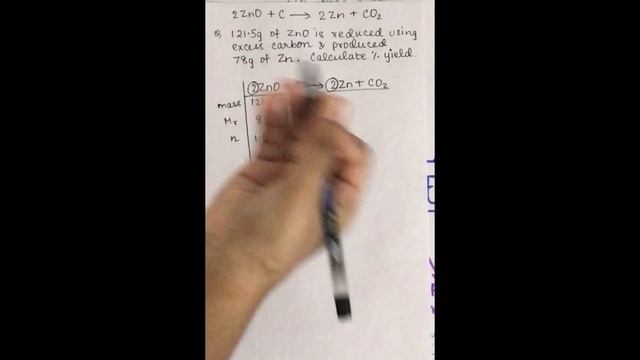 2ZnO + C → 2Zn + CO₂
Q. 121.5g of ZnO is reduced using
excess carbon & produced
78g of Zn. Calculate % yield.
②ZnO → ②Zn + CO₂
mass
Mr
n